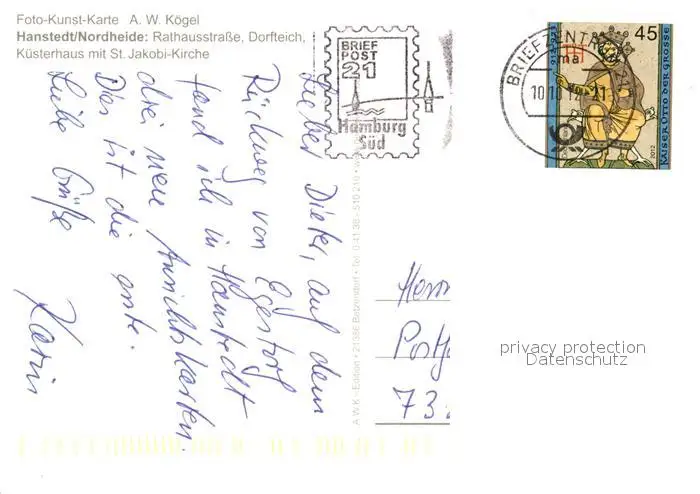 Foto-Kunst-Karte A. W. Kögel
Hanstedt/Nordheide: Rathausstraße, Dorfteich,
Küsterhaus mit St. Jakobi-Kirche
BRIEF
POST
21
Hamburg
Süd
BRIEFZENTR
10.10.12-21
45
KAISER OTTO DER GROSSE
2012
Lieber Dieter, auf dem
Rückweg von Egestorf
fand ich in Hanstedt
drei neue Ansichtskarten.
Das ist die erste.
Liebe Grüße
Karin
A.W.K.-Edition • 21386 Betzendorf • Tel. 0 41 38 - 510 210 •
Herrn
Postf
73
privacy protection
Datenschutz